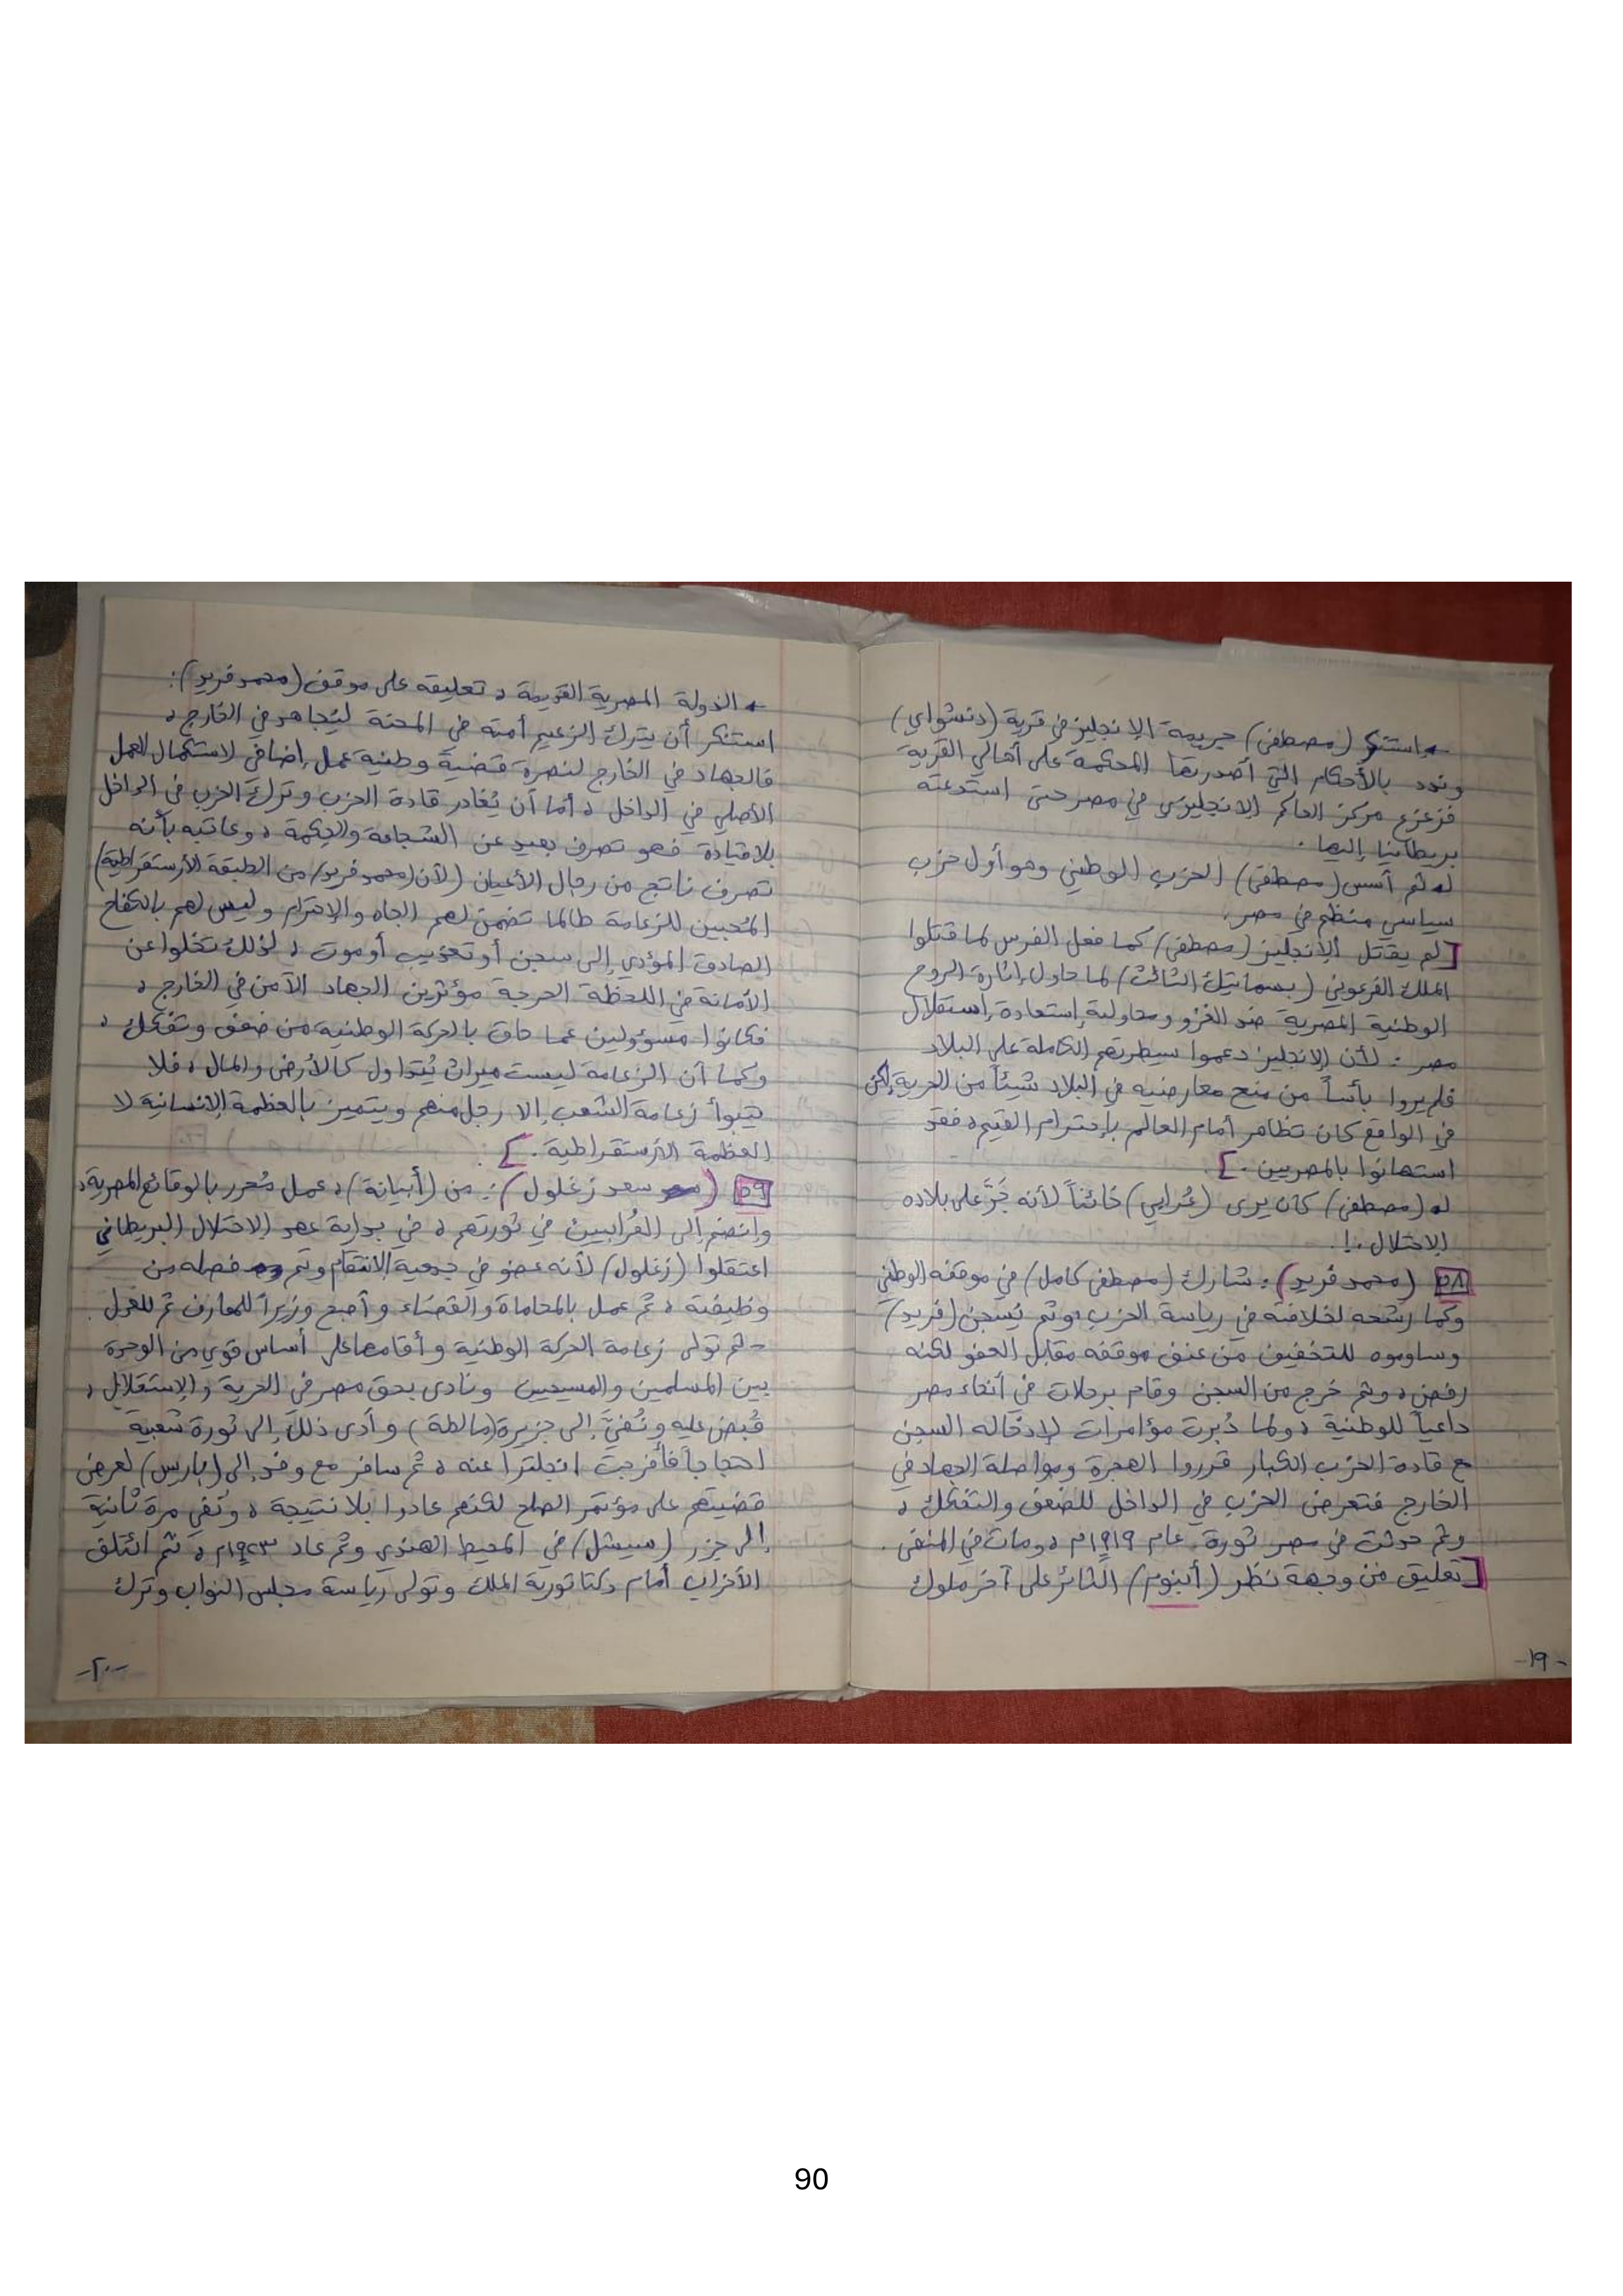 ← استنكر (مصطفى) جريمة الإنجليز في قرية (دنشواي)
وندد بالأحكام التي أصدرتها المحكمة على أهالي القرية
فزعزع مركز الحاكم الإنجليزي في مصر حتى استدعته
بريطانيا إليها.
له ثم أسس (مصطفى) الحزب الوطني وهو أول حزب
سياسي منظم في مصر.
[لم يقتل الإنجليز (مصطفى) كما فعل الفرس لما قتلوا
الملك الفرعوني (بسماتيك الثالث) لما حاول إثارة الروح
الوطنية المصرية ضد الغزو ومحاولة إستعادة إستقلال
مصر : لأن الإنجليز دعموا سيطرتهم الكاملة على البلاد
فلم يروا بأساً من منح معارضيه في البلاد شيئاً من الحرية، لكن
في الواقع كان تظاهر أمام العالم بإحترام القيم، فقد
استهانوا بالمصريين.]
له (مصطفى) كان يرى (عُرابي) خائناً لأنه جَرَّ على بلاده
الاحتلال.!.
٥٨ (محمد فريد): شارك (مصطفى كامل) في موقفه الوطني
وكما رشحه لخلافته في رياسة الحزب، وتم سجن (فريد)
وساوموه للتخفيف من عنف موقفه مقابل العفو لكنه
رفض، وتم خرج من السجن وقام برحلات في أنحاء مصر
داعياً للوطنية، ولما دُبرت مؤامرات لإدخاله السجن
مع قادة الحزب الكبار قرروا الهجرة ومواصلة الجهاد في
الخارج فتعرض الحزب في الداخل للضعف والتفكك،
وتم حدثت في مصر ثورة عام ١٩١٩م، ومات في المنفى.
[تعليق من وجهة نظر (أبنوم) الثائر على آخر ملوك
-١٩-
← الدولة المصرية القديمة، تعليقه على موقف (محمد فريد):
استنكر أن يترك الزعيم أمته في المحنة ليُجاهد في الخارج،
فالجهاد في الخارج لنصرة قضية وطنية عمل إضافي لاستكمال العمل
الأصلي في الداخل، أما أن يُغادر قادة الحزب وترك الحزب في الداخل
بلا قيادة فهو تصرف بعيد عن الشجاعة والحكمة، وعاتبه بأنه
تصرف ناتج من رجال الأعيان (لأن (محمد فريد) من الطبقة الأرستقراطية)
المُحبين للزعامة طالما تضمن لهم الجاه والإحترام وليس لهم بالكفاح
الصادق المؤدي إلى سجن أو تعذيب أو موت، لذلك تخلوا عن
الأمانة في اللحظة الحرجة مؤثرين الجهاد الآمن في الخارج،
فكانوا مسؤولين عما حاق بالحركة الوطنية من ضعف وتفكك،
وكما أن الزعامة ليست ميراث يُتداول كالأرض والمال، فلا
يتبوأ زعامة الشعب إلا رجل منهم ويتميز بالعظمة الإنسانية لا
العظمة الأرستقراطية.]
٥٩ (سعد زغلول): من (أبيانة)، عمل مُحرر بالوقائع المصرية،
وانضم إلى العُرابيين في ثورتهم، في بداية عهد الاحتلال البريطاني
اعتقلوا (زغلول) لأنه عضو في جمعية الانتقام وتم فصله من
وظيفته، ثم عمل بالمحاماة والقضاء وأصبح وزيراً للمعارف ثم للعدل.
- ثم تولى زعامة الحركة الوطنية وأقامها على أساس قوي من الوحدة
بين المسلمين والمسيحيين ونادى بحق مصر في الحرية والإستقلال،
قُبض عليه ونُفيَ إلى جزيرة (مالطة) وأدى ذلك إلى ثورة شعبية
احتجاجاً فأفرجت انجلترا عنه، ثم سافر مع وفد إلى (باريس) لعرض
قضيتهم على مؤتمر الصلح لكنهم عادوا بلا نتيجة، ونُفي مرة ثانية
إلى جزر (سيشل) في المحيط الهندي وتم عاد ١٩٢٣م، ثم ائتلف
الأحزاب أمام دكتاتورية الملك وتولى رياسة مجلس النواب وترك
-٢٠-
90